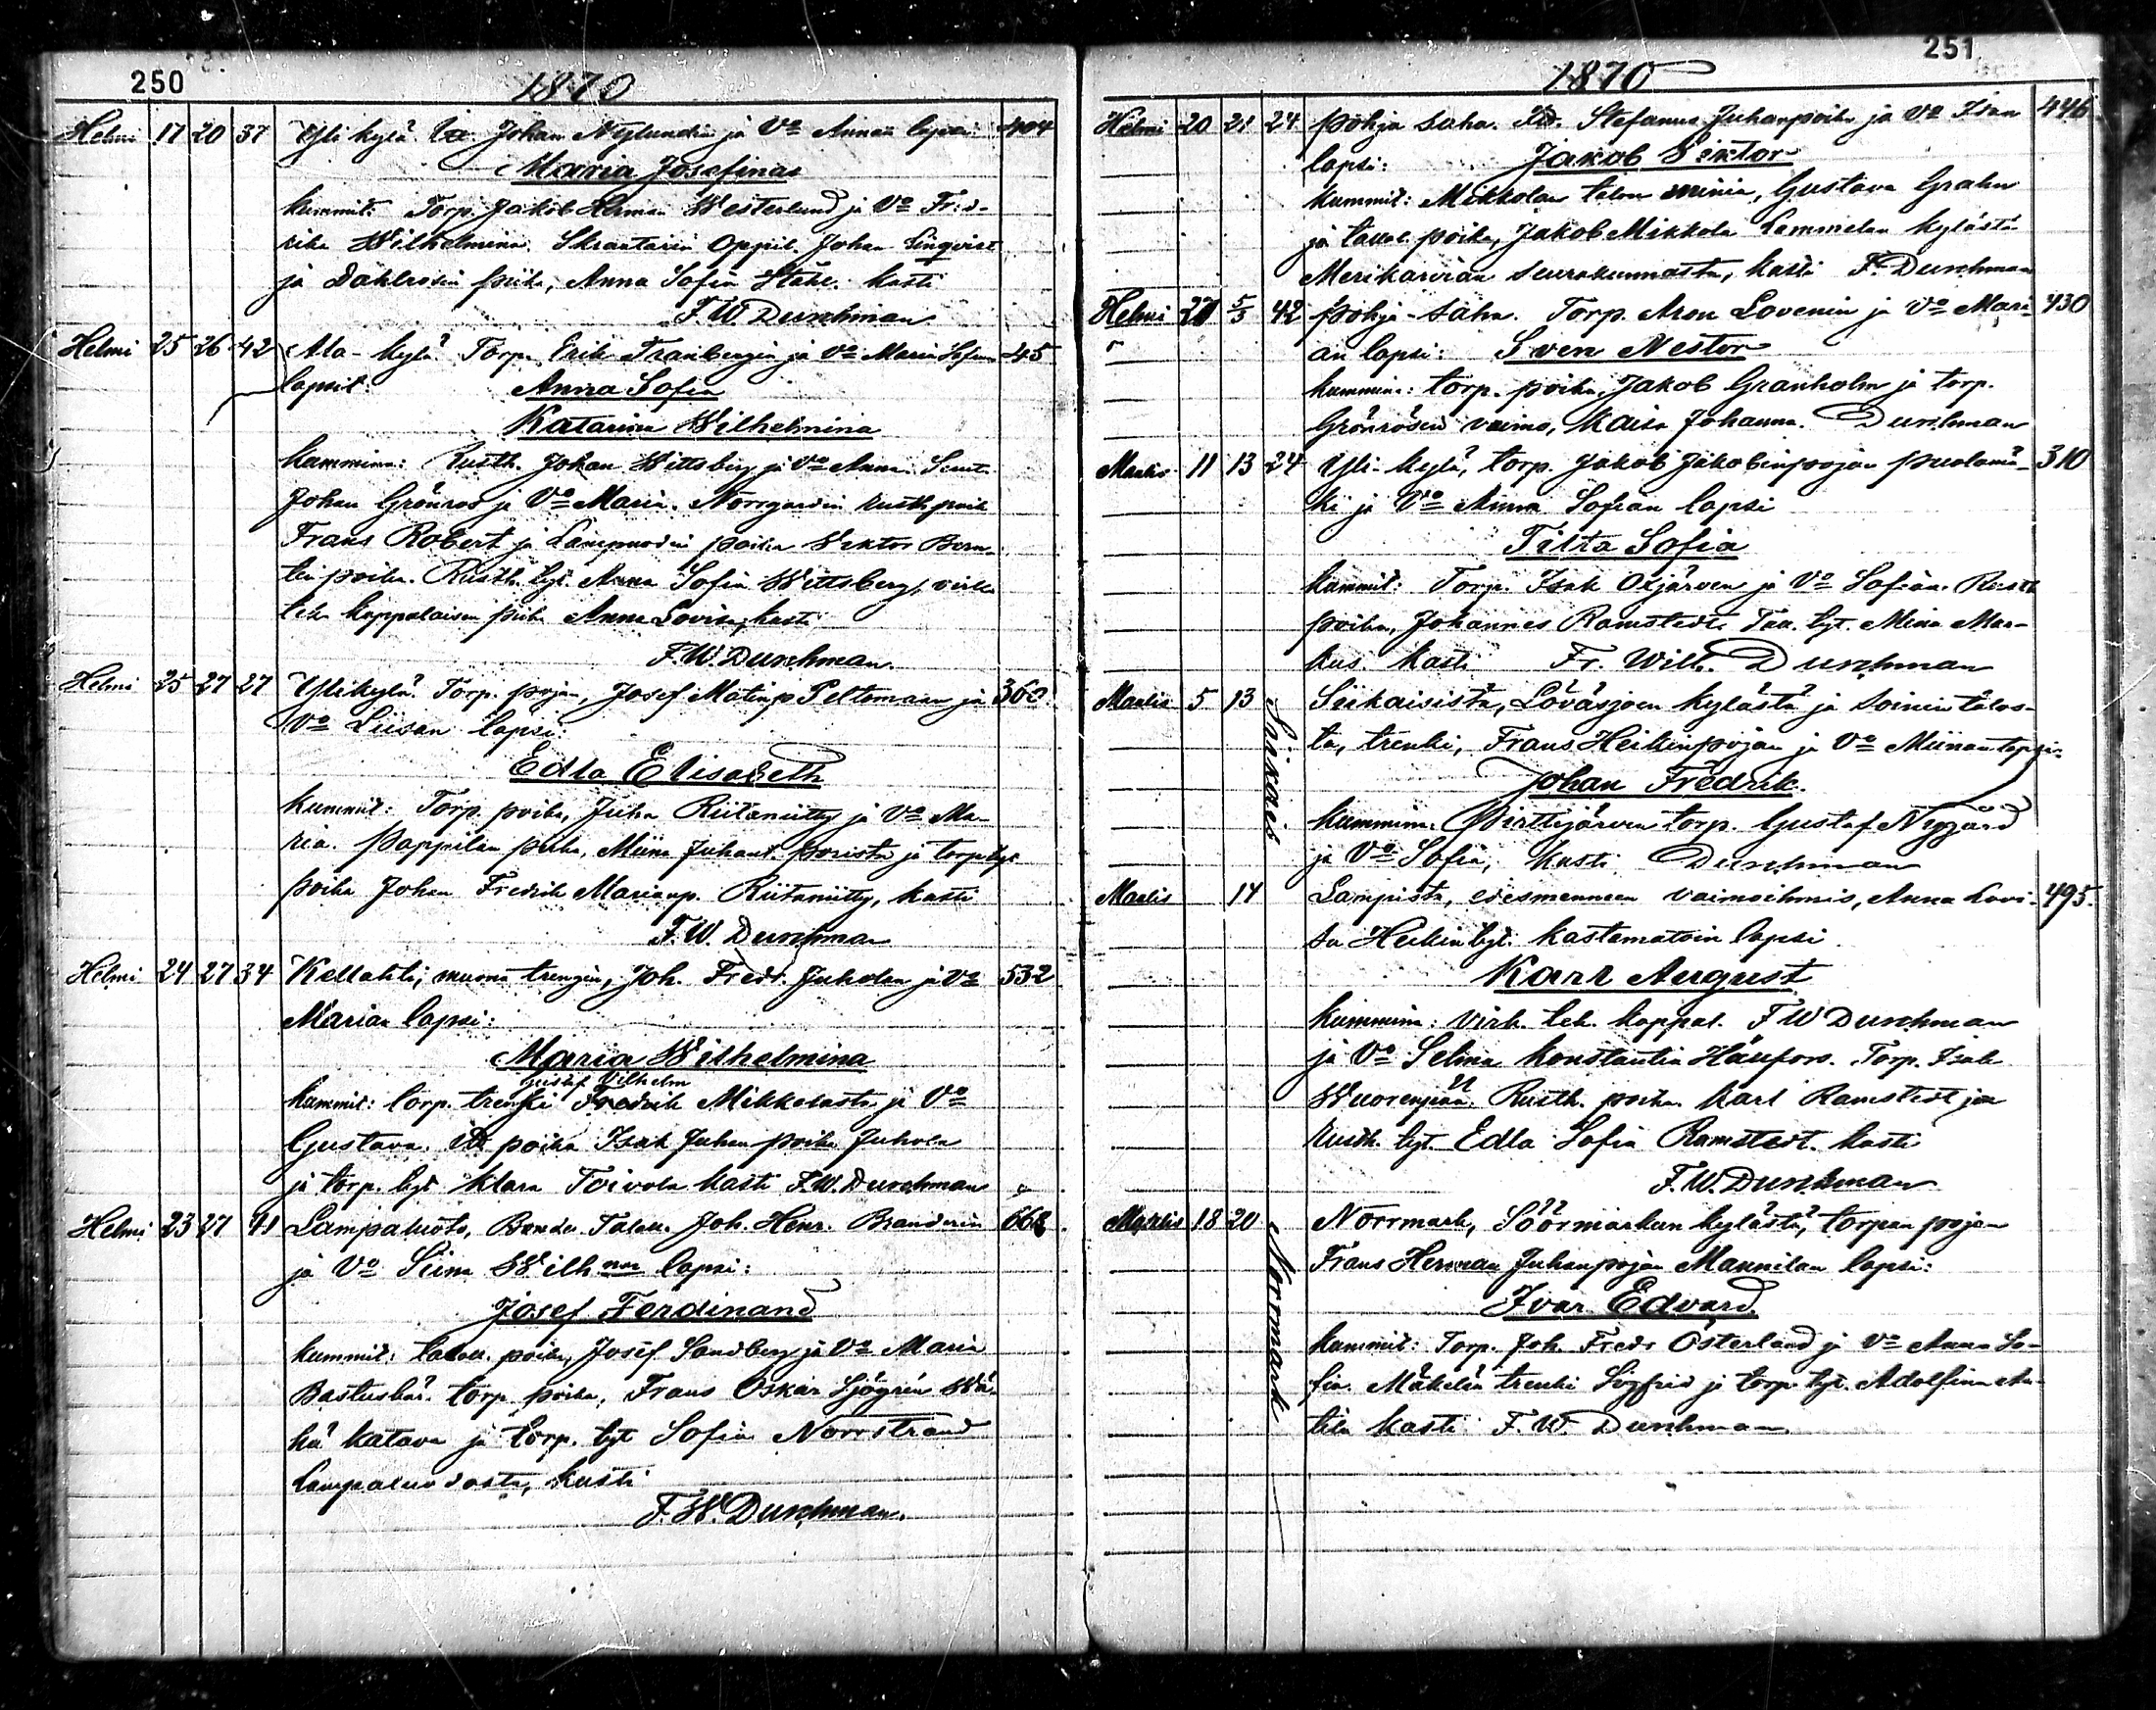 250
1870
Helmi 17 20 37 Yli kylä. Johan Nylundin ja Vo Annan lapsi: 404
Maria Josefina
Kummit: Torp. Jakob Herman Westerlund ja Vo Fred-
rika Wilhelmina. Skraatarin Oppil. Johan Linqvist
ja Dahlrosin piika, Anna Sofia Ståhl. Kasti
F.W. Durchman
Helmi 25 26 42 Ala-kylä. Torp. Erik Tranbergin ja Vo Maria Sofian 45
lapsit: Anna Sofia
Katarina Wilhelmina
Kummina: Rusth. Johan Wittsberg ja Vo Anna.
Johan Grönroos ja Vo Maria. Norrgardin rusth. poik
Frans Robert ja poika Viktor Bern-
tin poika. Rusth. tyt. Anna Sofia Wittsberg, virk.
tek. kappalaisen piika Anna Lovisa, kasti
F.W. Durchman
Helmi 25 27 27 Ylikylä. Torp. pojan, Josef Matinp. Peltomaan ja 360
Vo Liisan lapsi:
Edla Elisabeth
Kummit: Torp. poika, Juha Riitaniitty ja Vo Ma-
ria. Pappilan piika, Miina Juhant. Porista ja torp. tyt
poika Johan Fredrik Marianp. Riitaniitty, kasti
F.W. Durchman
Helmi 24 27 34 Kellahti, muona trengin, Joh. Fredr. Juholan ja Vo 532
Marian lapsi:
Maria Wilhelmina
Gustaf Vilhelm
Kummit: torp. trenki Fredrik Mikkelasta ja Vo
Gustava. poika Isak Juhan poika Juhola
ja torp. tyt Klara Toivola kasti F.W. Durchman
Helmi 23 27 41 Lampaluoto, Bonda Talol. Joh. Henr. Branderin 668
ja Vo Siina Wilh.nan lapsi:
Josef Ferdinand
Kummit: talol. poika, Josef Sandberg ja Vo Maria
Bastubär. torp. poika, Frans Oskar Sjögrén Wä-
hä Katava ja torp. tyt Sofia Norrstrand
Lampaluodosta, kasti
F.W. Durchman.
251
1870
Helmi 20 21 24 Pohja saha. Stefanus Juhanpoika ja Vo Iidan 446
lapsi: Jakob Viktor
Kummit: Mikkolan talon miniä, Gustava Grahn
ja talol. poika, Jakob Mikkola Lammelan kylästä
Merikarvian seurakunnasta, kasti F. Durchman
Helmi 27 5/3 42 Pohja-saha. Torp. Aron Lovenin ja Vo Mari- 430
an lapsi: Sven Nestor
Kummina: torp. poika, Jakob Granholm ja torp.
Grönrosin vaimo, Kaisa Johanna. Durchman
Maalis 11 13 24 Yli-kylä, torp. Jakob Jakobinpojan Puolamä- 310
ki ja Vo Anna Sofian lapsi
Tilta Sofia
Kummit: Torp. Isak Oxjärven ja Vo Sofia. Rusth
poika, Johannes Ramstedt. Tal. tyt. Mina Mar-
kus. Kasti Fr. Wilh. Durchman
Maalis 5 13 Siikais Siikaisista, Löväsjoen kylästä ja Soinin talos-
ta, trenki, Frans Heikinpojan ja Vo Miinan lapsi:
Johan Fredrik.
Kummina. Wirttijärven torp. Gustaf Nygård
ja Vo Sofia, kasti Durchman
Maalis 14 Lampista, edesmenneen vaimoihmis, Anna Lovi- 495
sa Heikintyt. kastamatoin lapsi
Karl August
Kummina: Virk. tek. kappal. F W Durchman
ja Vo Selma Konstantia Hänfors. Torp. Isak
Wuorenpää. Rusth. poika. Karl Ramstedt ja
rusth. tyt. Edla Sofia Ramstedt. kasti
F.W. Durchman
Maalis 18 20 Norrmark Norrmark, Söörmarkun kylästä, torpan pojan
Frans Herman Juhanpojan Mannilan lapsi:
Ivar Edvard
Kummit: Torp. Joh. Fredr Österland ja Vo Anna So-
fia. Mäkelän trenki Sigfrid ja torp. tyt. Adolfina An-
tila kasti F.W. Durchman